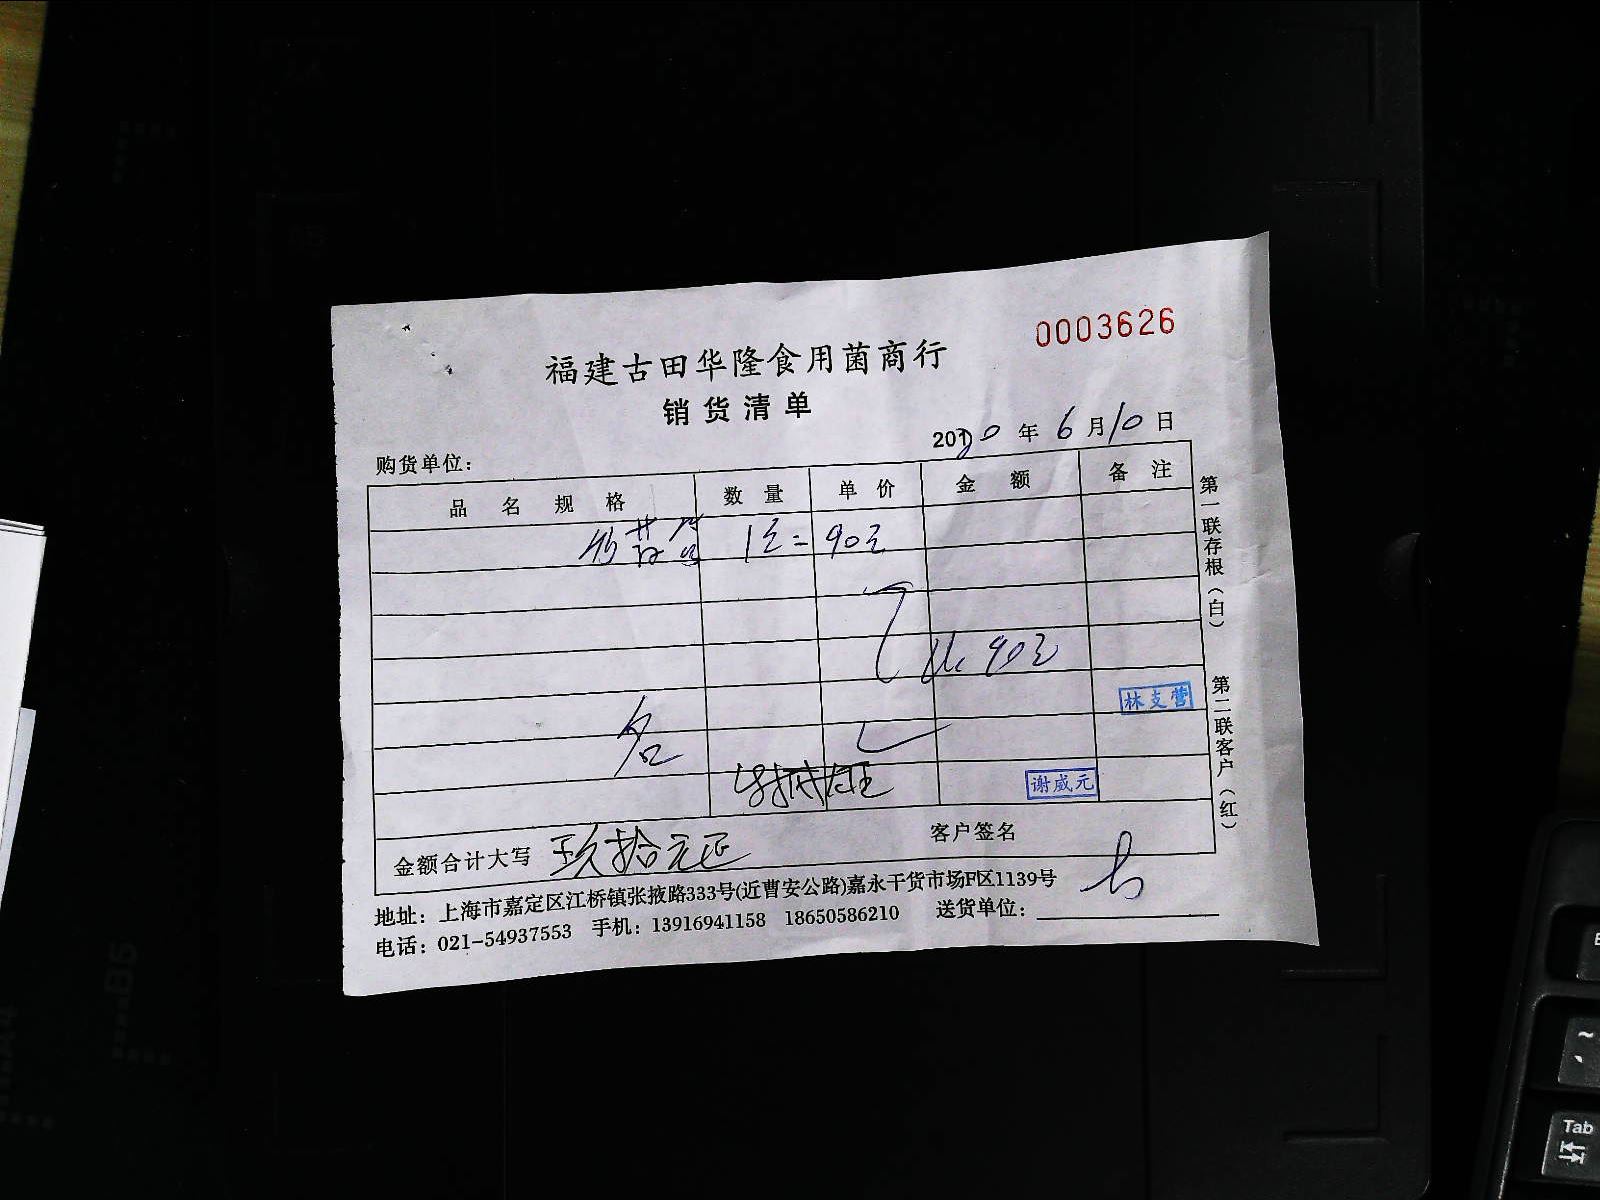 0003626
福建古田华隆食用菌商行
销货清单
2020年6月10日
购货单位：
品名规格 数量 单价 金额 备注
1 = 90元
90元
林支营
谢威元
金额合计大写 玖拾元正 客户签名
地址：上海市嘉定区江桥镇张掖路333号(近曹安公路)嘉永干货市场F区1139号
电话：021-54937553 手机：13916941158 18650586210 送货单位：
第一联存根（白）
第二联客户（红）
Tab